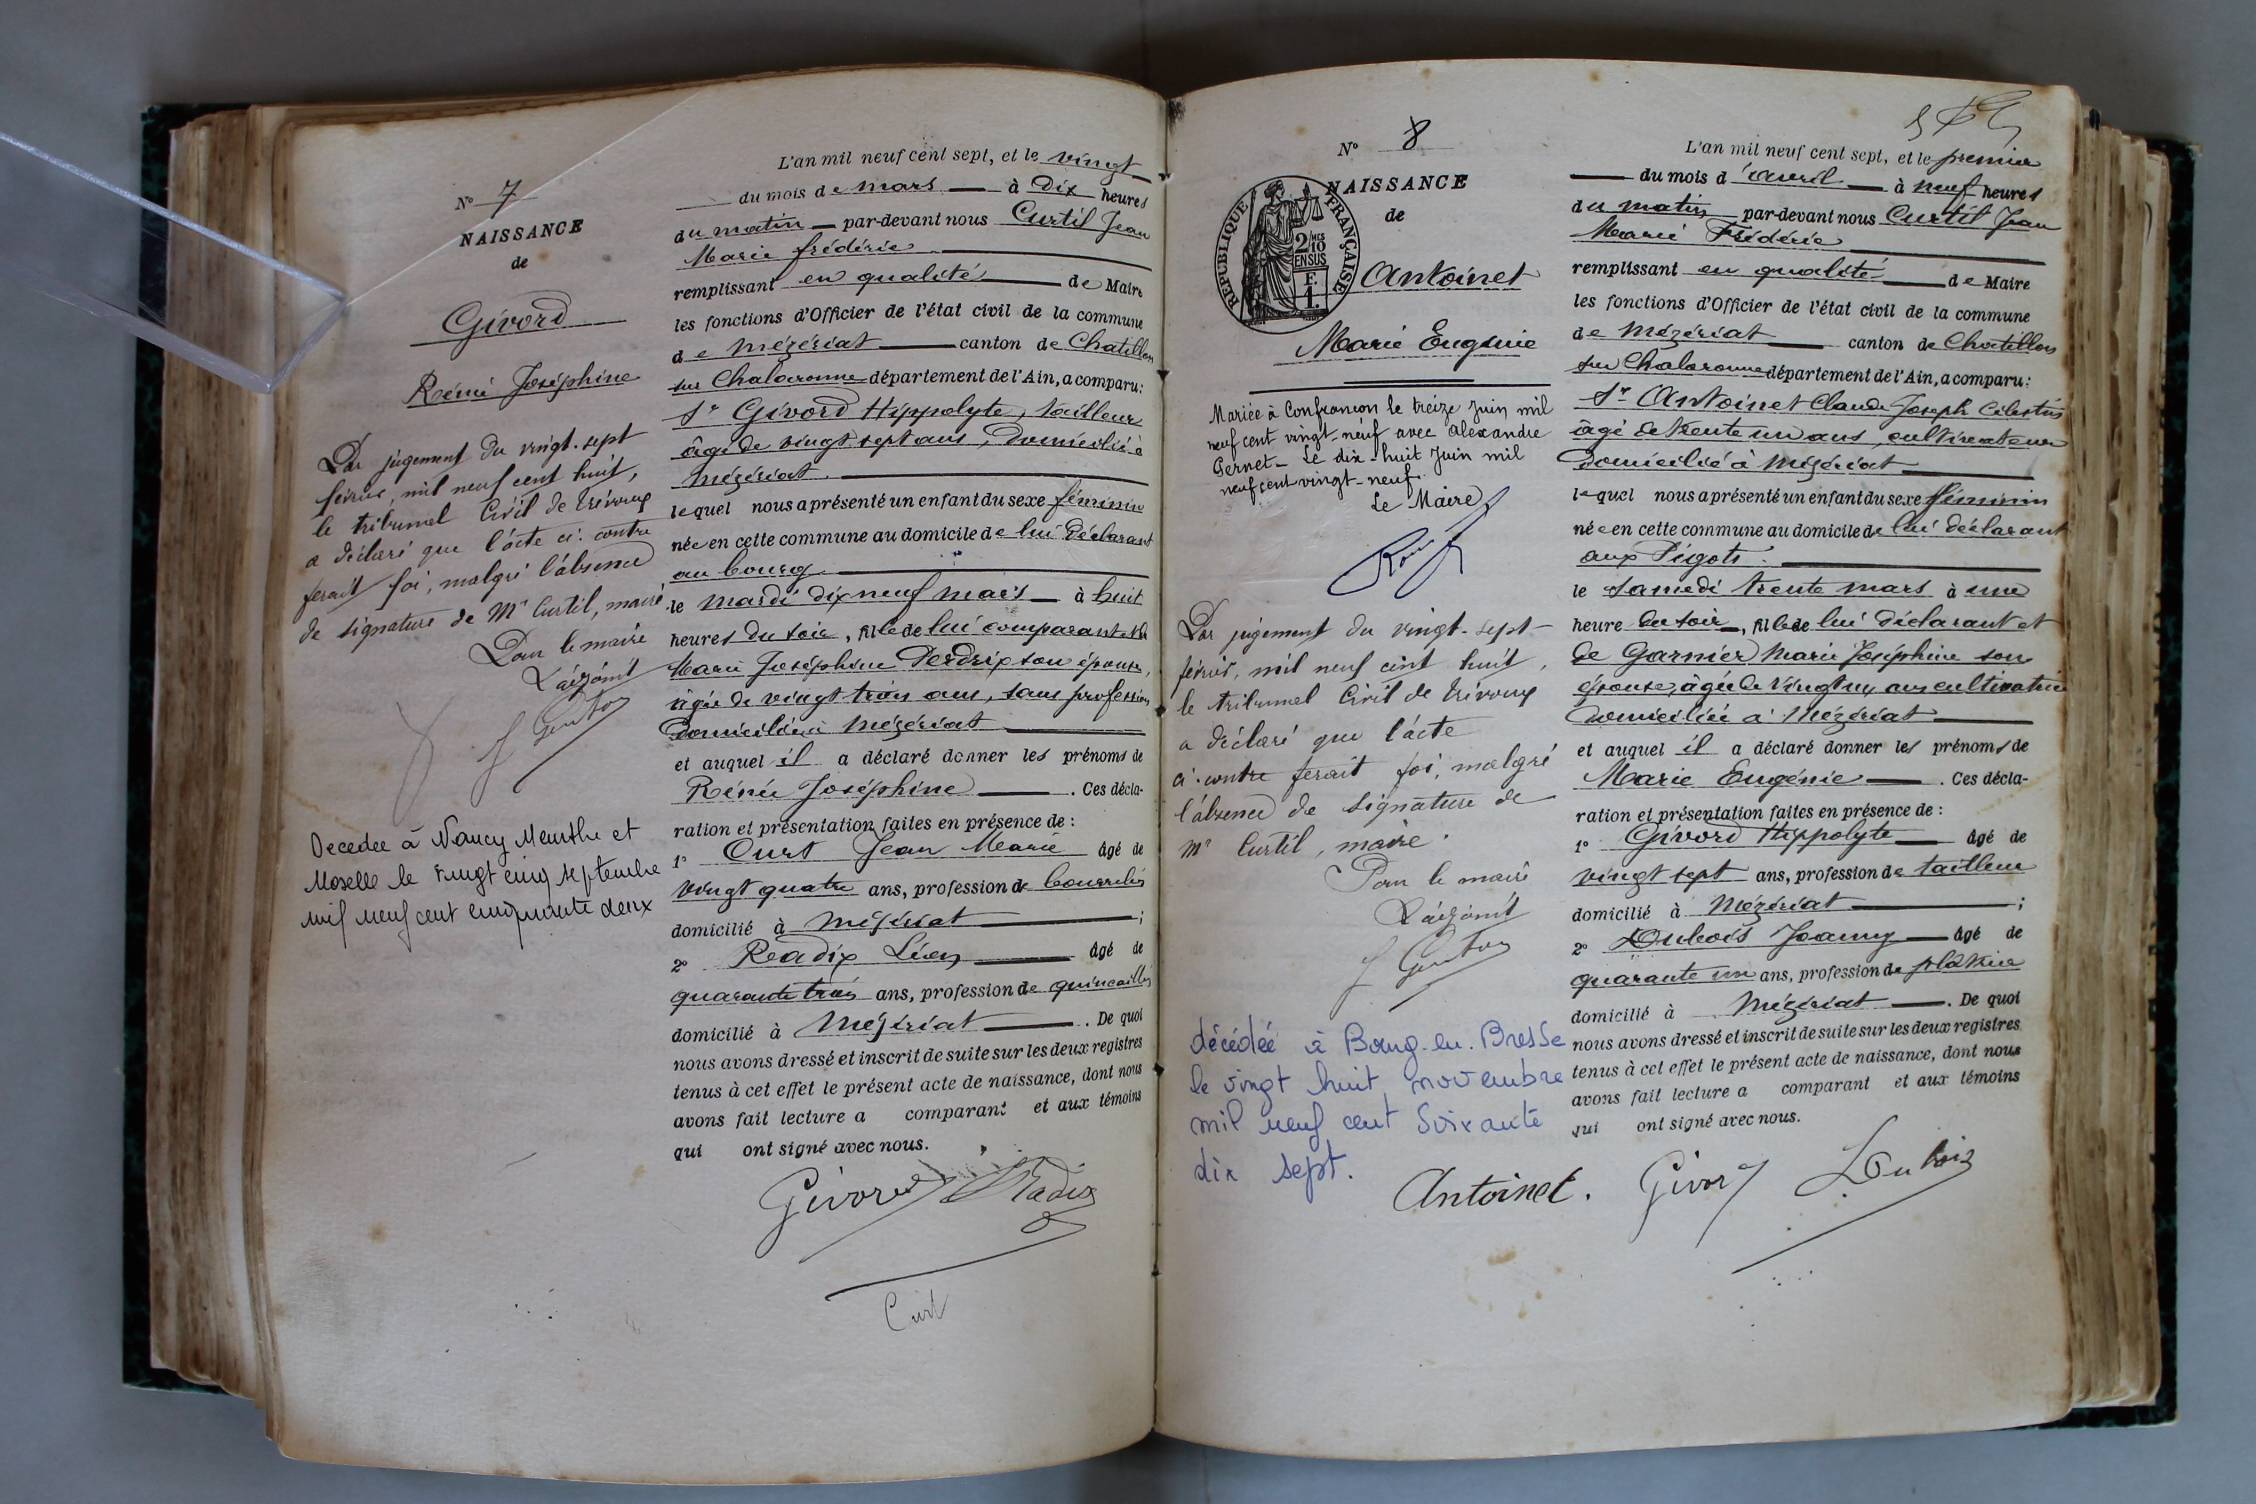 N° 7
NAISSANCE
de
Givord
Rénée Joséphine
Par jugement du vingt-sept
février, mil neuf cent huit,
le tribunal Civil de Trévoux
a déclaré que l'acte ci-contre
ferait foi, malgré l'absence
de signature de Mr Curtil, maire.
Pour le maire
L'adjoint
Décédée à Nancy Meurthe et
Moselle le vingt cinq septembre
mil neuf cent cinquante deux
L'an mil neuf cent sept, et le vingt
du mois de mars à dix heures
du matin par-devant nous Curtil Jean
Marie frédéric
remplissant en qualité de Maire
les fonctions d'Officier de l'état civil de la commune
de Mézériat canton de Chatillon
sur Chalaronne département de l'Ain, a comparu:
Sr Givord Hippolyte, tailleur
âgé de vingt sept ans, domicilié à
Mézériat.
lequel nous a présenté un enfant du sexe féminin
née en cette commune au domicile de lui déclarant
au bourg.
le mardi dix neuf mars à huit
heures du soir, fille de lui comparant et de
Marie Joséphine Perdrix son épouse,
âgée de vingt trois ans, sans profession
domiciliée à Mézériat
et auquel il a déclaré donner les prénoms de
Rénée Joséphine . Ces décla-
ration et présentation faites en présence de :
1° Curt Jean Marie âgé de
vingt quatre ans, profession de bourrelier
domicilié à Mézériat ;
2° Readix Léon âgé de
quarante trois ans, profession de quincaillier
domicilié à Mézériat . De quoi
nous avons dressé et inscrit de suite sur les deux registres
tenus à cet effet le présent acte de naissance, dont nous
avons fait lecture a comparant et aux témoins
qui ont signé avec nous.
Givord Radix
Curt
N° 8
NAISSANCE
de
REPUBLIQUE FRANÇAISE
2/10 MES
EN SUS
F.
1.
Antoinet
Marie Eugénie
Mariée à Confrançon le treize Juin mil
neuf cent vingt-neuf avec Alexandre
Pernet - Le dix-huit Juin mil
neuf cent vingt-neuf.
Le Maire
Par jugement du vingt-sept
février, mil neuf cent huit,
le tribunal Civil de Trévoux
a déclaré que l'acte
ci-contre ferait foi, malgré
l'absence de signature de
Mr Curtil, maire.
Pour le maire
L'adjoint
décédée à Bourg-en-Bresse
le vingt huit novembre
mil neuf cent soixante
dix sept.
L'an mil neuf cent sept, et le premier
du mois d'avril à neuf heures
du matin par-devant nous Curtil Jean
Marie Frédéric
remplissant en qualité de Maire
les fonctions d'Officier de l'état civil de la commune
de Mézériat canton de Chatillon
sur Chalaronne département de l'Ain, a comparu:
Sr Antoinet Claude Joseph Célestin
âgé de trente un ans, cultivateur
domicilié à Mézériat
lequel nous a présenté un enfant du sexe féminin
née en cette commune au domicile de lui déclarant
aux Pigots.
le samedi trente mars à une
heure du soir, fille de lui déclarant et
de Garnier Marie Joséphine son
épouse, âgée de vingt ans cultivatrice
domiciliée à Mézériat
et auquel il a déclaré donner les prénoms de
Marie Eugénie . Ces décla-
ration et présentation faites en présence de :
1° Givord Hippolyte âgé de
vingt sept ans, profession de tailleur
domicilié à Mézériat ;
2° Dubois Joanny âgé de
quarante un ans, profession de plâtrier
domicilié à Mézériat . De quoi
nous avons dressé et inscrit de suite sur les deux registres
tenus à cet effet le présent acte de naissance, dont nous
avons fait lecture a comparant et aux témoins
qui ont signé avec nous.
Antoinet. Givord Dubois